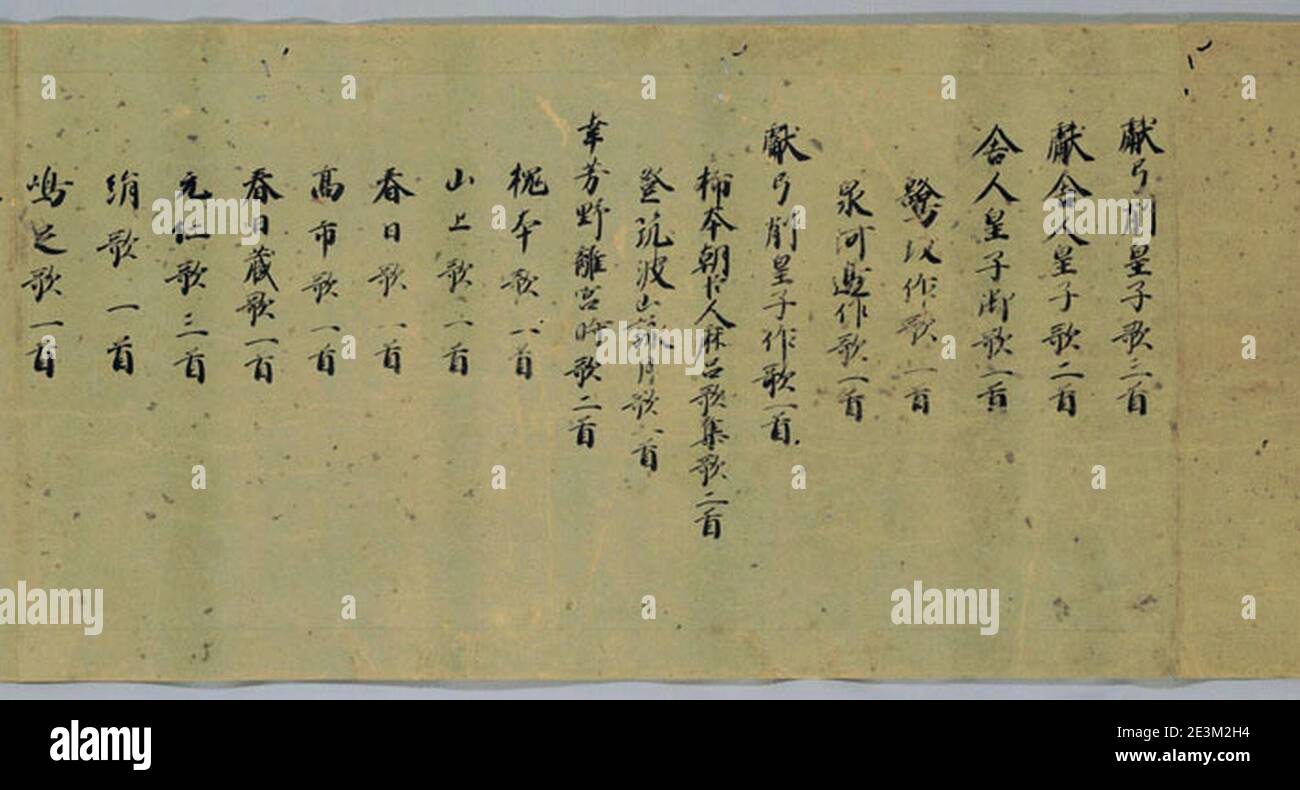 献弓削皇子歌三首
献舎人皇子歌二首
舎人皇子御歌一首
鷺坂作歌一首
泉河邊作歌一首
獻弓削皇子作歌一首
柿本朝臣人麻呂歌集歌二首
登筑波山詠月歌一首
幸芳野離宮時歌二首
槐本歌一首
山上歌一首
春日歌一首
高市歌一首
春日蔵歌一首
元仁歌三首
絹歌一首
嶋足歌一首
alamy
Image ID: 2E3M2H4
www.alamy.com